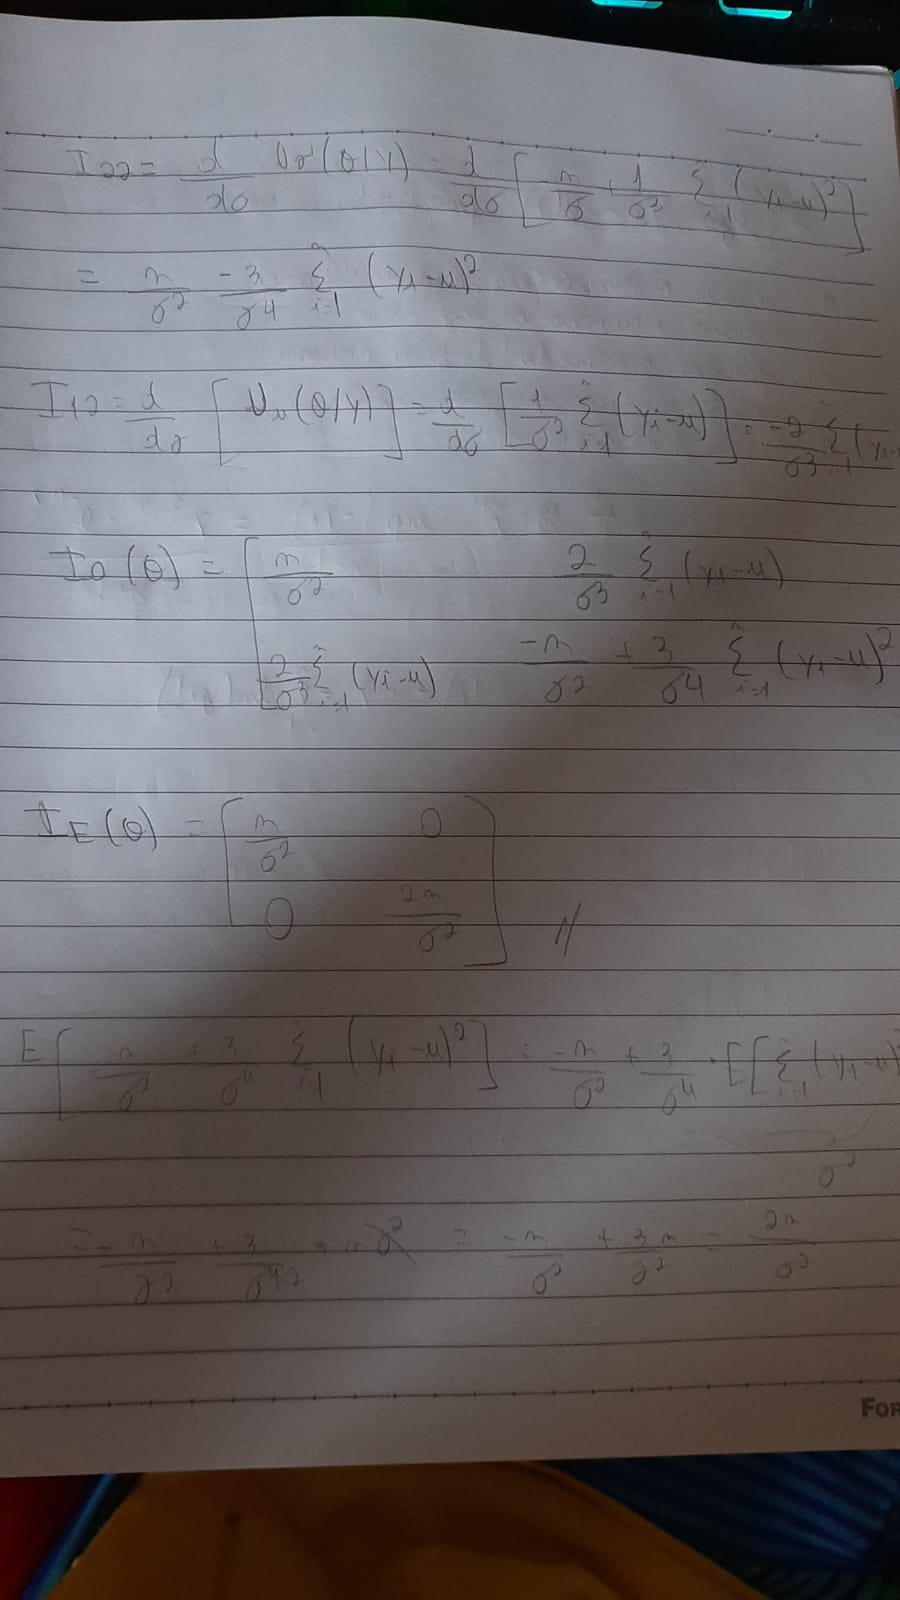 I₂₂ = d/dσ Uσ(θ/Y) = d/dσ [n/σ + 1/σ³ Σⁿᵢ₌₁ (Yi-μ)²]
= n/σ² -3/σ⁴ Σⁿᵢ₌₁ (Yi-μ)²
I₁₂ = d/dσ [Uμ(θ/Y)] = d/dσ [1/σ² Σⁿᵢ₌₁ (Yi-μ)] = -2/σ³ Σⁿᵢ₌₁ (Yi-
I₀(θ) = [n/σ² 2/σ³ Σⁿᵢ₌₁ (Yi-μ)
2/σ³ Σⁿᵢ₌₁ (Yi-μ) -n/σ² + 3/σ⁴ Σⁿᵢ₌₁ (Yi-μ)²
I_E(θ) = [n/σ² 0
0 2n/σ²] //
E[-n/σ² + 3/σ⁴ Σⁿᵢ₌₁ (Yi-μ)²] = -n/σ² + 3/σ⁴ · E[Σⁿᵢ₌₁ (Yi-μ)
σ²
= -n/σ² + 3/σ⁴² · nσ² = -n/σ² + 3n/σ² = 2n/σ²
FOR